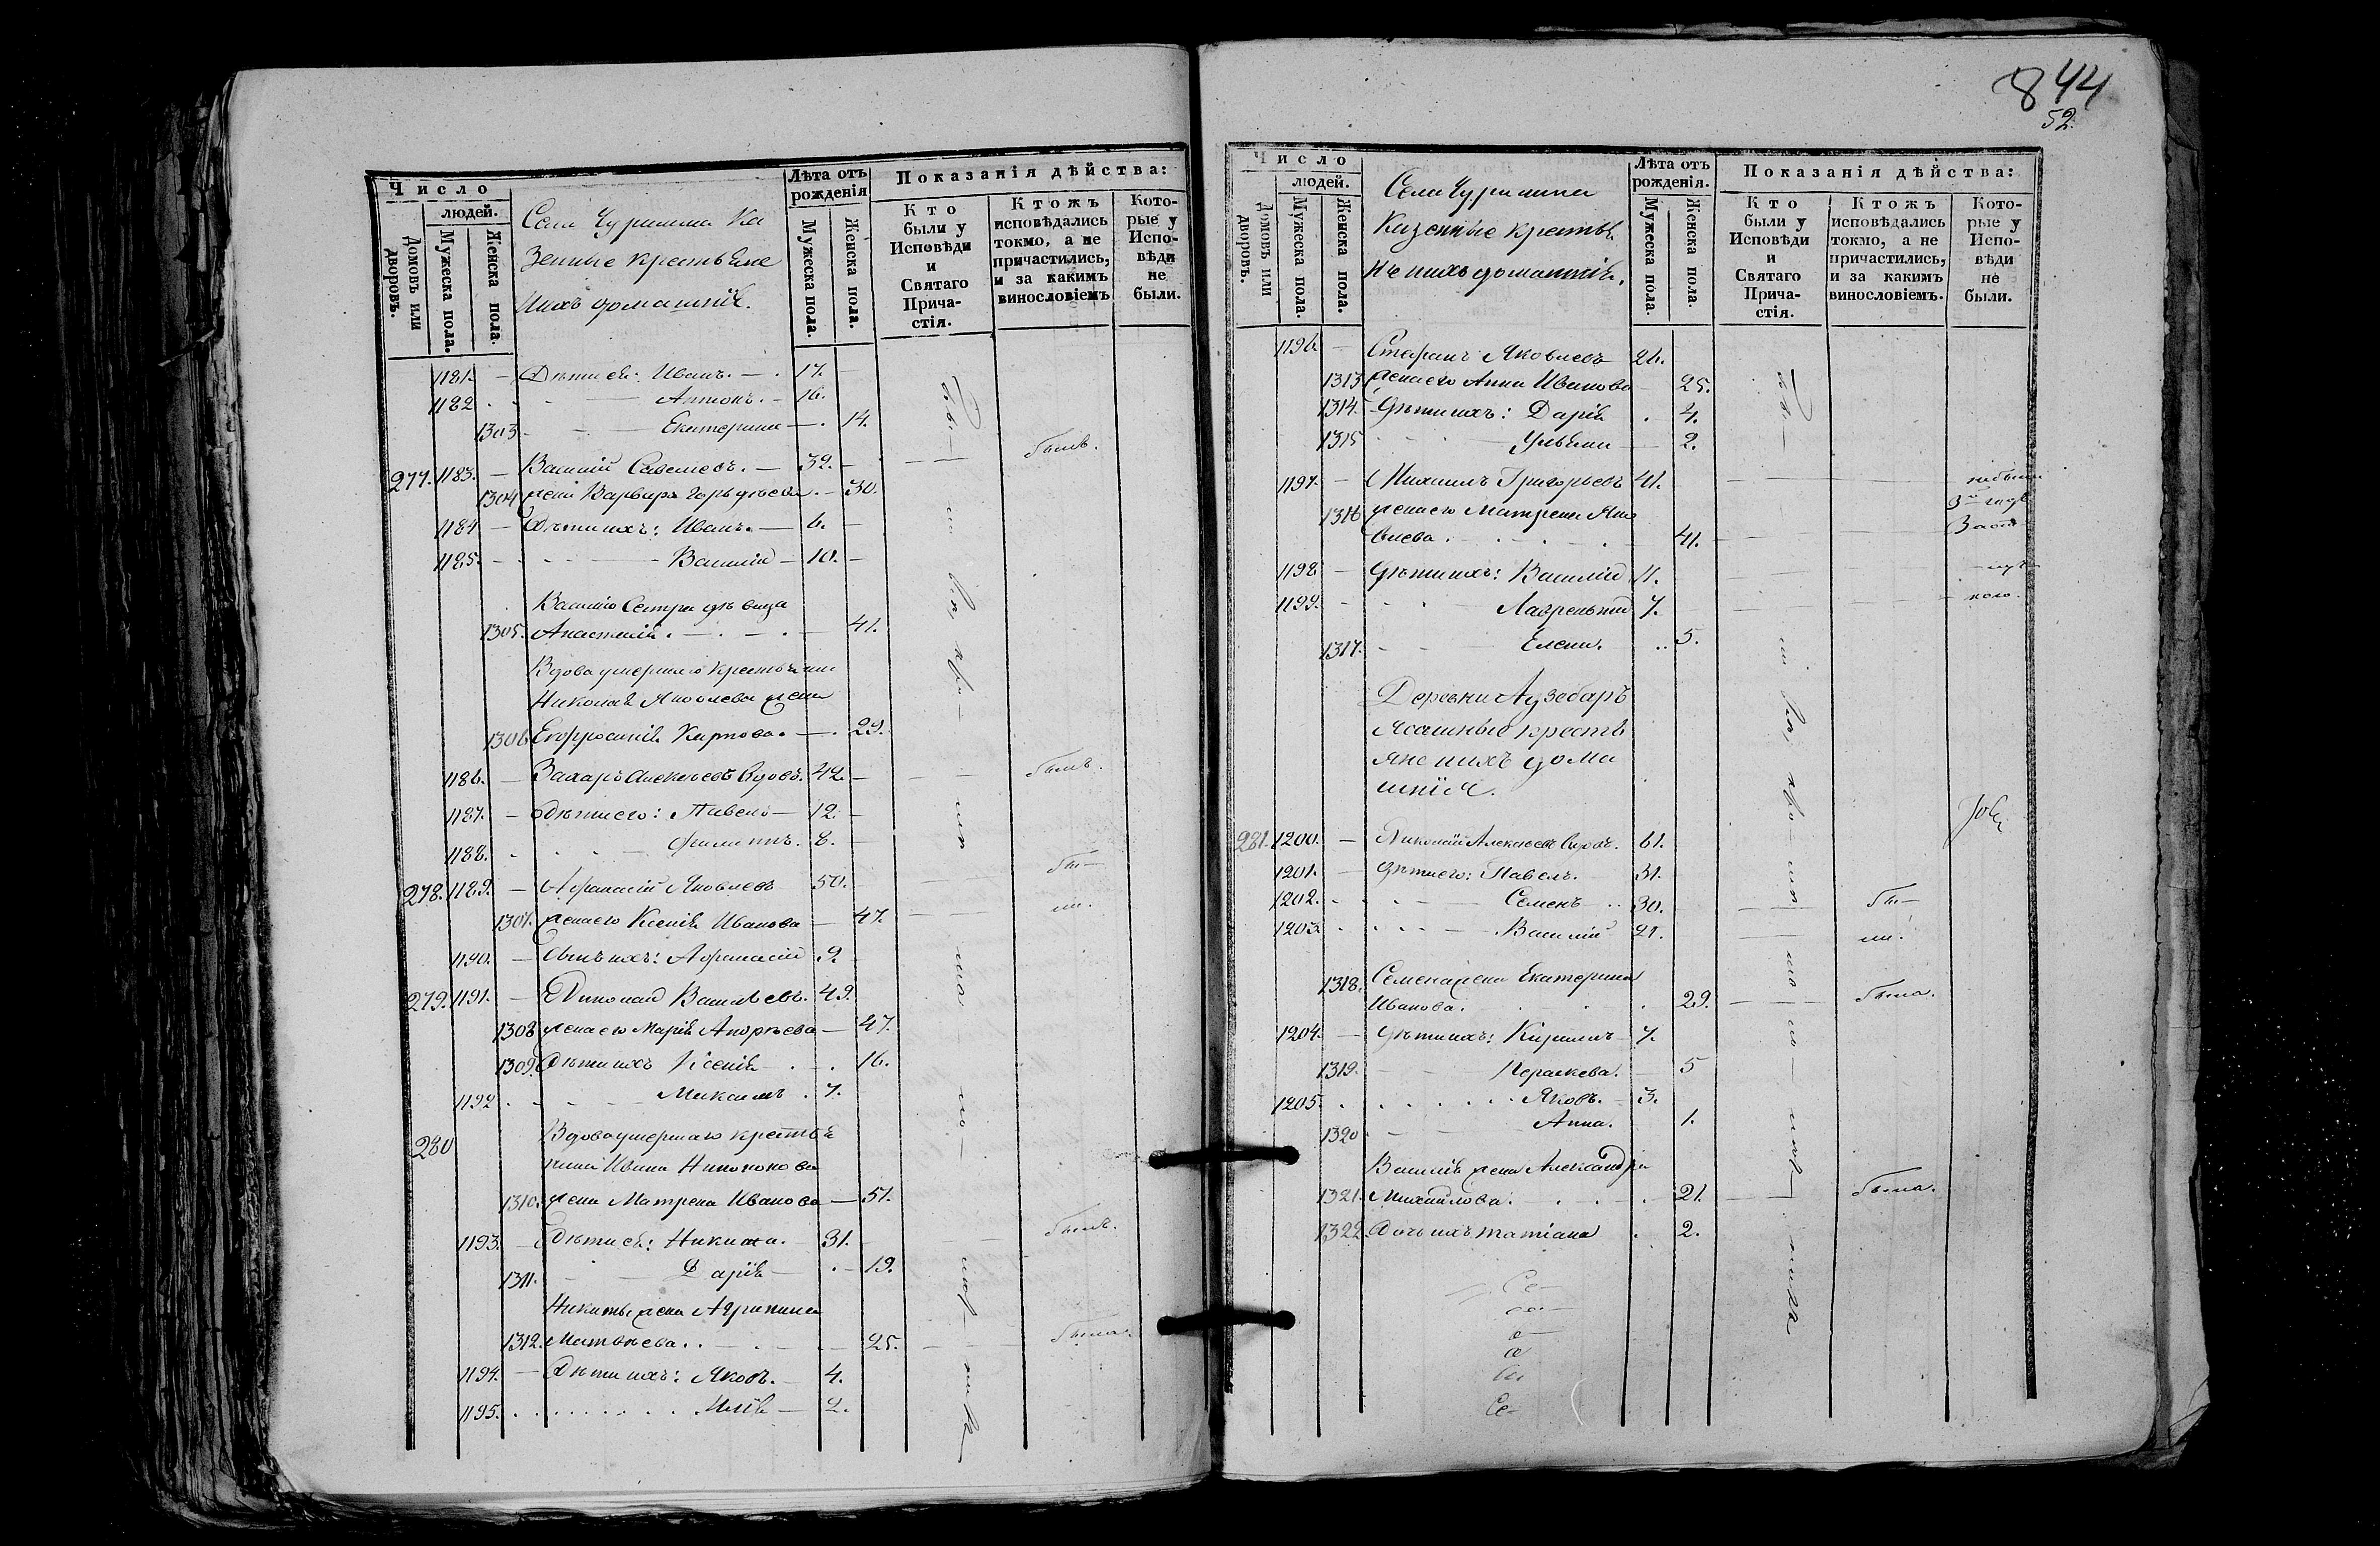 Число
людей.
Домовъ или дворовъ.
Мужеска пола.
Женска пола.
Села Чуришина Ка
зенные крестьяне
и ихъ домашнія.
Лѣта отъ рожденія
Мужеска пола.
Женска пола.
Показанія дѣйства:
Кто были у Исповѣди и Святаго Причастія.
Ктожъ исповѣдались токмо, а не причастились, и за какимъ винословіемъ
Которые у Исповѣди не были.
1181. – Дѣти ея: Иванъ. – 17. –
1182 – Антонъ. – 16.
1303 – Екатерина – 14.
277. 1183. – Василій Савельевъ. – 32. – былъ.
1304 жена Варвара – 30.
1184 – Дѣти ихъ: Иванъ. – 6. –
1185. – Василій – 10. –
Василія Сестра дѣвица
1305. Анастасія. – 41.
Вдова умершаго крестьянина
Николая Яковлева жена
1306 Евфросинія Карпова. – 29.
1186. – Захаръ Алексѣевъ вдовъ. 42. – былъ.
1187. – Дѣти его: Павелъ – 12. –
1188. – Филиппъ. 8. –
278. 1189. – Афанасій Яковлевъ 50. – бы–
1307. жена его Ксенія Ивановa – 47. ли.
1190. – Сынъ ихъ: Афанасій 9.
279. 1191. – Николай Васильевъ. 49.
1308 жена его Марія Андреева – 47.
1309. Дѣти ихъ Ксенія – 16.
1192 – Максимъ. 7.
280 Вдова умершаго крестья
нина Ивана Никонова
1310. жена Матрена Иванова – 51.
1193. – Дѣти ея: Никита. – 31. – былъ.
1311. – Дарія – 19.
Никиты жена Агрипина
1312. Матвѣева. – 25. – была.
1194. – Дѣти ихъ: Яковъ. – 4.
1195. Илія – 2.
844
52.
Число
людей.
Домовъ или дворовъ.
Мужеска пола.
Женска пола.
Села Чуришина
Казенные крестья
не и ихъ домашнія.
Лѣта отъ рожденія.
Мужеска пола.
Женска пола.
Показанія дѣйства:
Кто были у Исповѣди и Святаго Причастія.
Ктожъ исповѣдались токмо, а не причастились, и за какимъ винословіемъ.
Которые у Исповѣди не были.
1196. – Яковлевъ 26.
1313 жена его Анна Иванова – 25.
1314. Дѣти ихъ: Дарія . 4.
1315 – Ульяна – 2.
1197. – Михаилъ Григорьевъ 41. – небыли
1316 жена его Матрена Яко
влева. – 41.
1198 – Дѣти ихъ: Василій 11.
1199. – Лаврентій 7.
1317. – Елена. 5.
Деревни Аузебаръ
Ясашные кресть
яне и ихъ дома
шнія.
281. 1200. – Николай Алексѣевъ вдовъ. 61.
1201. – Дѣти его: Павелъ. 31.
1202. – Семенъ 30. – бы–
1203. – Василій 21. – ли.
1318. Семена жена Екатерина
Иванова. 29. – была.
1204. – Дѣти ихъ: Кирилъ 7.
1319. – Параскева. – 5
1205. Яковъ. – 3.
1320 – Анна. 1.
Василія жена Александра
1321. Михайлова. 21. – была.
1322. Дочь ихъ татіана . 2.